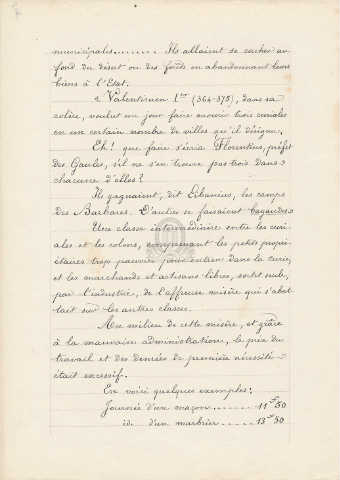 municipales........ Ils allaient se cacher au
fond du désert ou des forêts en abandonnant leurs
biens à l'Etat.
« Valentinien 1er (364-375), dans sa
colère, voulut un jour faire mourir trois curiales
en un certain nombre de villes qu'il désigna.
Eh! que faire s'écria Florentius, préfet
des Gaules, s'il ne s'en trouve pas trois dans
chacune d'elles?
Ils gagnaient, dit Libanius, les camps
des Barbares. D'autres se faisaient bagaudes.
Une classe intermédiaire entre les curi-
ales et les colons, comprenant les petits propri-
étaires trop pauvres pour entrer dans la curie,
et les marchands et artisans libres, sortit seule,
par l'industrie, de l'affreuse misère qui s'abat-
tait sur les autres classes.
Au milieu de cette misère, et grâce
à la mauvaise administration, le prix du
travail et des denrées de première nécessité
était excessif.
En voici quelques exemples:
Journée d'un maçon ........ 11 50
id. d'un marbrier ........ 13 50